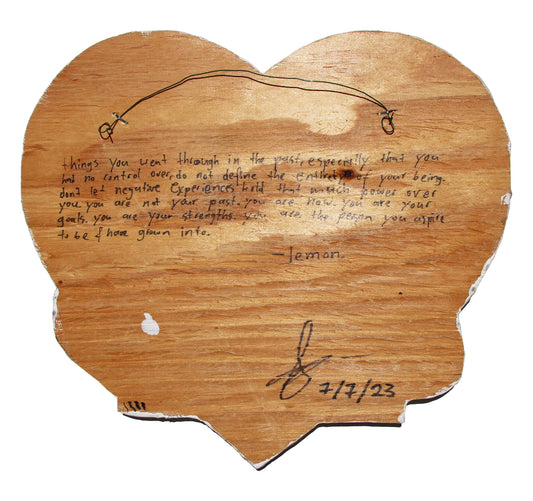 things you went through in the past, especially that you
had no control over, do not define the entirety of your being.
don't let negative experiences hold that much power over
you. you are not your past. you are now. you are your
goals. you are your strengths. you are the person you aspire
to be & have grown into.
-lemon.
7/7/23